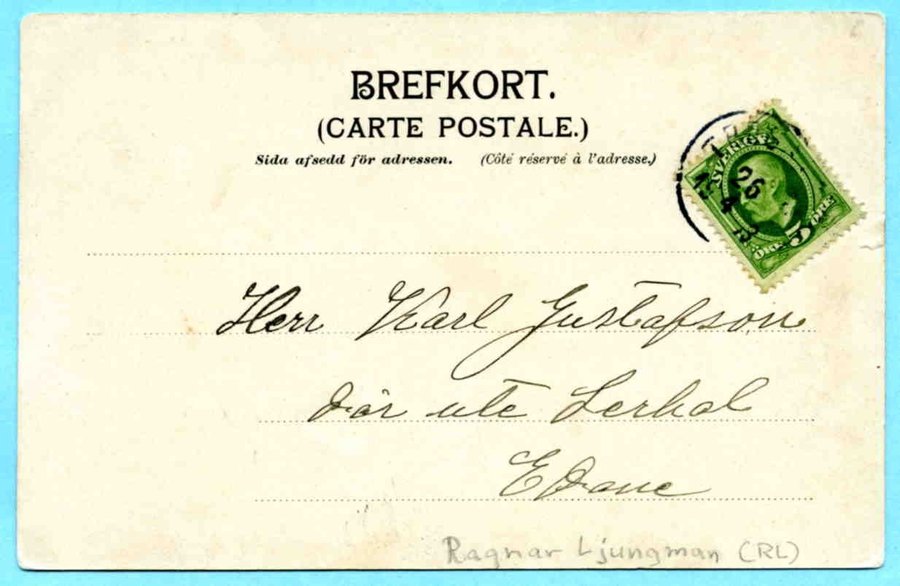 BREFKORT.
(CARTE POSTALE.)
Sida afsedd för adressen. (Côté réservé à l'adresse.)
SVERIGE
ÖRE 5 ÖRE
26
4
Herr Karl Gustafson
där ute Lerhol
Edane
Ragnar Ljungman (RL)